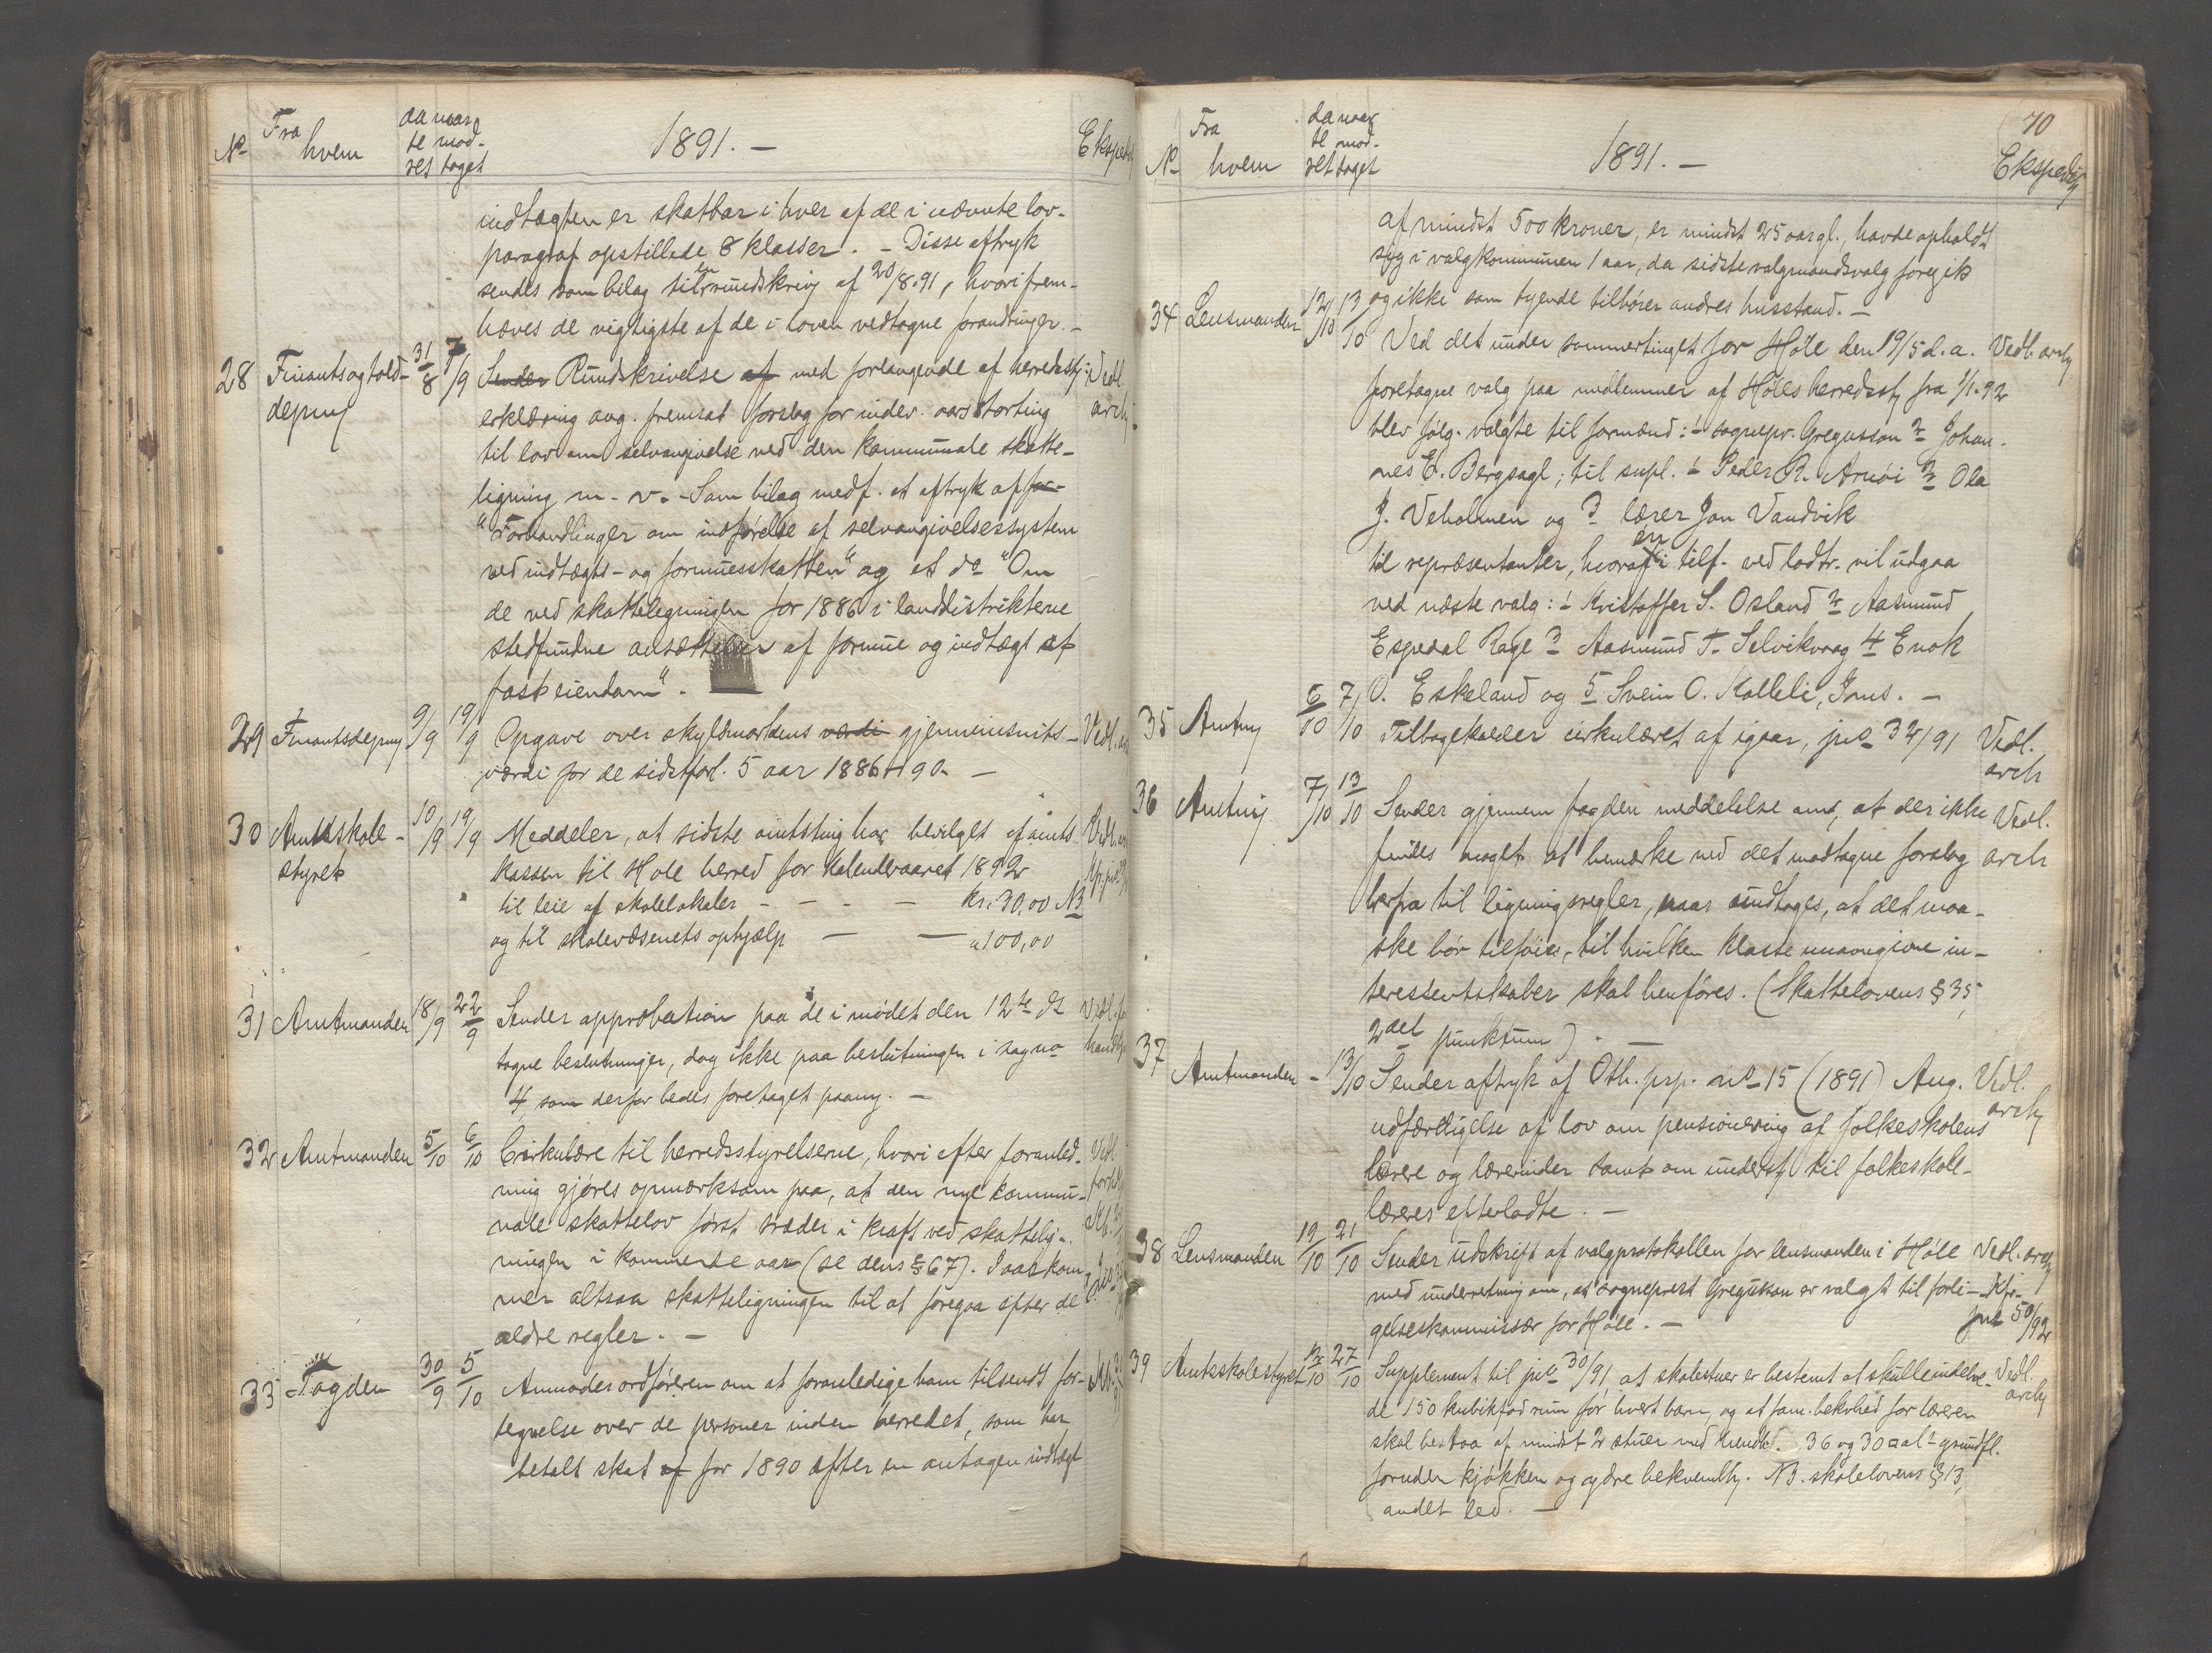 No Fra hvem da te ret naar mod- taget 1891. — Eksped
indtægten er skatbar i hver af de i nævnte lov-
paragraf opstillede 8 klasser. — Disse aftryk
sendes som bilag til en rundskriv af 20/8.91, hvori frem-
hæves de vigtigste af de i loven vedtagne forandringer. —
28 Finants og told- 31/8 7/9 Sender Rundskrivelse af med forlangende af herredssty: Vedl.
depmg erklæring ang. fremsat forslag for indev. aars storting arch.
til lov om selvangivelse ved den kommunale skatte-
ligning m. v. - Som bilag medf. et aftryk af for-
"Forhandlinger om indførelse af selvangivelsessystem
ved indtægts- og formuesskatten" og et do "Om
de ved skattelegningen for 1886 i landdistrikterne
stedfundne ansættelser af formue og indtægt af
fast eiendom".
29 Finantsdepmg 9/9 19/9 Opgave over skyldmarkens værdi gjennemsnits- Vedl. ar
værdi for de sidstforl. 5 aar 1886-90. —
30 Amtsskole- 10/9 19/9 Meddeler, at sidste amtsting har bevilget af amts Vedl. ar
styret kassen til Høle herred for kalenderaaret 1892
til leie af skolelokaler - - - — kr. 30,00 NB
og til skolevæsenets ophjælp — — " 100,00
31 Amtmanden 18/9 22/9 Sender approbation paa de i mødet den 12te ds Vedl. for
tagne beslutninger, dog ikke paa beslutningen i sag no handl
4, som derfor bedes foretaget paany. —
32 Amtmanden 5/10 6/10 Cirkulære til herredsstyrelserne, hvori efter foranled- Vedl.
ning gjøres opmærksom paa, at den nye kommu-
nale skattelov først træder i kraft ved skattelig-
ningen i kommende aar (se dens § 67). I aar kom
mer altsaa skatteligningen til at foregaa efter de
ældre regler. —
33 Fogden 30/9 5/10 Anmoder ordføreren om at foranledige ham tilsendt for-
tegnelse over de personer inden herredet, som har
betalt skat af for 1890 efter en antagen indtægt
70
No Fra hvem da te ret naar mod- taget 1891. — Eksped
af mindst 500 kroner, er mindst 25 aar gl., havde opholdt
sig i valgkommunen 1 aar, da sidste valgmandsvalg foregik
og ikke som tyende tilhører andres husstand. —
34 Lensmanden 12/10 13/10 Ved det under sommertinget for Høle den 19/5 d. a. Vedl. arch
foretagne valg paa medlemmer af Høles herredsst. fra 1/1-92
blev følg. valgte til formænd: 1 sognepr. Gregusson 2 Johan-
nes E. Bergsagl; til supl. 1 Peder R. Arnøi 2 Ola
J. Veholmen og 3 lærer Jon Vandvik
til repræsentanter, hvoraf en i tilf. ved lodtr. vil udgaa
ved næste valg: 1 Kristoffer S. Osland 2 Aasmund
Espedal Rage 3 Aasmund T. Selvikvaag 4 Enok
O. Eskeland og 5 Svein O. Kolleli, Ims. —
35 Amtmg 6/10 7/10 Tilbagekalder cirkulæret af igaar, jno 32/91 Vedl.
arch
36 Amtmg 7/10 13/10 Sender gjennem fogden meddelelse om, at der ikke Vedl.
findes noget at bemærke ved det modtagne forslag arch
herfra til ligningsregler, naar undtages, at det maa-
ske bør tilføies, til hvilken klasse unavngivne in-
teressentskaber skal henføres. (Skattelovens § 35,
2det punktum). —
37 Amtmanden - 13/10 Sender aftryk af Oth. prp. no 15 (1891) Ang. Vedl.
udfærdigelse af lov om pensionering af folkeskolens arch
lærere og lærerinder samt om underst. til folkeskole-
læreres efterladte. —
38 Lensmanden 19/10 21/10 Sender udskrift af valgprotokollen for lensmanden i Høle Vedl. arch
med underretning om, at sogneprest Gregusson er valgt til forli-
gelseskommissær for Høle. — jno 50/92
39 Amtsskolestyret 12/10 27/10 Supplement til jno 30/91 at skolestuer er bestemt at skulle indehol- Vedl.
de 150 kubikfod rum for hvert barn, og at fam. bekvhed for læreren arch
skal bestaa af mindst 2 stuer med henhd. 36 og 30 □al. grundfl.
foruden kjøkken og ydre bekvemlh. NB. skolelovens § 13,
andet led. —